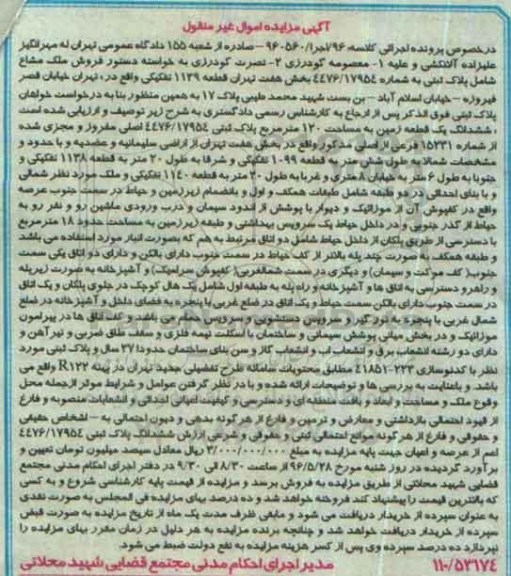 آگهی مزایده اموال غیر منقول
درخصوص پرونده اجرائی کلاسه ۹۶/اجرا/۹۶۰۵۶۰ – صادره از شعبه ۱۵۵ دادگاه عمومی تهران له مهرانگیز
علیزاده آلانکشی و علیه ۱- معصومه گودرزی ۲- نصرت گودرزی به خواسته دستور فروش ملک مشاع
شامل پلاک ثبتی به شماره ۴۴۷۶/۱۷۹۵۴ بخش هفت تهران قطعه ۱۱۳۹ تفکیکی واقع در، تهران خیابان قصر
فیروزه – خیابان اسلام آباد – بن بست شهید محمد طیبی پلاک ۱۷ به همین منظور بنا به درخواست خواهان
پلاک ثبتی فوق الذکر پس از ارجاع به کارشناس رسمی دادگستری به شرح زیر توصیف و ارزیابی شده است
، ششدانگ یک قطعه زمین به مساحت ۱۲۰ مترمربع پلاک ثبتی ۴۴۷۶/۱۷۹۵۴ اصلی مفروز و مجزی شده
از شماره ۱۵۲۳۱ فرعی از اصلی مذکور واقع در بخش هفت تهران از اراضی سلیمانیه و عضدیه و با حدود و
مشخصات شمالا به طول شش متر به قطعه ۱۰۹۹ تفکیکی و شرقا به طول ۲۰ متر به قطعه ۱۱۳۸ تفکیکی و
جنوبا به طول ۶ متر به خیابان ۸ متری و غربا به طول ۲۰ متر به قطعه ۱۱۴۰ تفکیکی و ملک مورد نظر شمالی
و با بنای احداثی در دو طبقه شامل طبقات همکف و اول و بانضمام زیرزمین و حیاط در سمت جنوب عرصه
واقع در کفپوش آن از موزائیک و دیوار با پوشش از اندود سیمان و درب ورودی ماشین رو و نفر رو به
حیاط از گذر جنوبی و در داخل حیاط یک سرویس بهداشتی و طبقه زیرزمین به مساحت حدود ۱۸ مترمربع
با دسترسی از طریق پلکان از داخل حیاط شامل دو اتاق مرتبط به هم که بصورت انبار مورد استفاده می باشد
و طبقه همکف به صورت چند پله بالاتر از کف حیاط در سمت جنوب دارای بالکن و دارای دو اتاق یکی سمت
جنوب( کف موکت و سیمان) و دیگری در سمت شمالغربی( کفپوش سرامیک) و آشپزخانه به صورت زیرپله
و راهرو دسترسی به اتاق ها و آشپزخانه و راه پله به طبقه اول شامل یک هال کوچک در جلوی پلکان و یک اتاق
در سمت جنوب دارای بالکن سمت حیاط و یک اتاق در ضلع غربی با پنجره به فضای داخل و آشپزخانه در ضلع
شمال غربی با پنجره به نورگیر و سرویس دستشویی و سرویس حمام می باشد و کف اتاق ها در پیرامون
موزائیک و در بخش میانی پوشش سیمانی و ساختمان با اسکلت نیمه فلزی و سقف طاق ضربی و تیرآهن و
دارای دو رشته انشعاب برق و انشعاب آب و انشعاب گاز و سن بنای ساختمان حدودا ۳۷ سال و پلاک ثبتی مورد
نظر با کدنوسازی ۲۲۳-۴۱۸۵۱ مطابق محتویات سامانه طرح تفضیلی جدید تهران در پهنه R۱۲۲ واقع می
باشد. و باعنایت به بررسی ها و توضیحات ارائه شده و با در نظر گرفتن عوامل و شرایط موثر ازجمله محل
وقوع ملک و مساحت و ابعاد و بافت منطقه ای و دسترسی و کیفیت اعیانی احداثی و انشعابات منصوبه و فارغ
از قیود احتمالی بازداشتی و معارض و ترمین و فارغ از هر گونه بدهی و دیون احتمالی به – اشخاص حقیقی
و حقوقی و فارغ از هر گونه موانع احتمالی ثبتی و حقوقی و شرعی ارزش ششدانگ پلاک ثبتی ۴۴۷۶/۱۷۹۵۴
اعم از عرصه و اعیان جهت پایه مزایده به مبلغ ۳/۰۰۰/۰۰۰/۰۰۰ ریال معادل سیصد میلیون تومان تعیین و
برآورد گردیده در روز شنبه مورخ ۹۶/۵/۲۸ از ساعت ۸/۳۰ الی ۹/۳۰ در دفتر اجرای احکام مدنی مجتمع
قضایی شهید محلاتی از طریق مزایده به فروش برسد و مزایده از قیمت پایه کارشناسی شروع و به کسی
که بالاترین قیمت را پیشنهاد کند فروخته خواهد شد و ده درصد بهای مزایده فی المجلس به صورت نقدی
به عنوان سپرده از خریدار دریافت می شود و مابقی ظرف مدت یک ماه از تاریخ مزایده به صورت قبض
سپرده از خریدار دریافت خواهد شد و چنانچه برنده مزایده به هر دلیل در زمان مقرر بهای مزایده را
نپردازد ده درصد سپرده وی پس از کسر هزینه مزایده به نفع دولت ضبط می شود.
۱۱۰/۵۳۱۷۴ مدیر اجرای احکام مدنی مجتمع قضایی شهید محلاتی